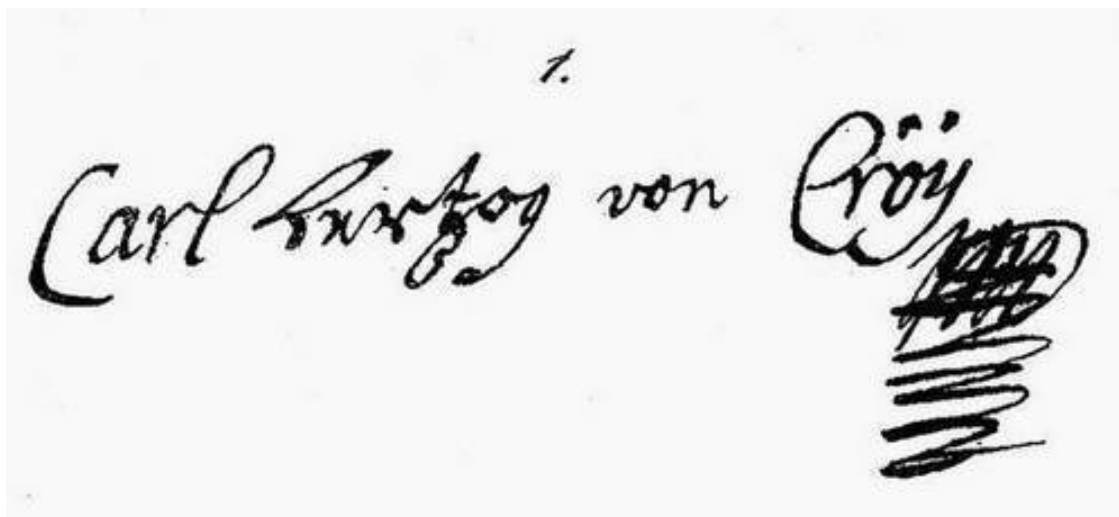 1.
Carl Hertzog von Croÿ